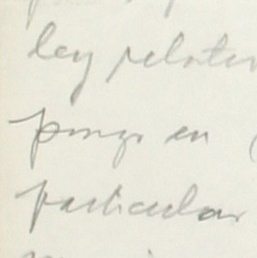 ley relativ
pongo en (
particular